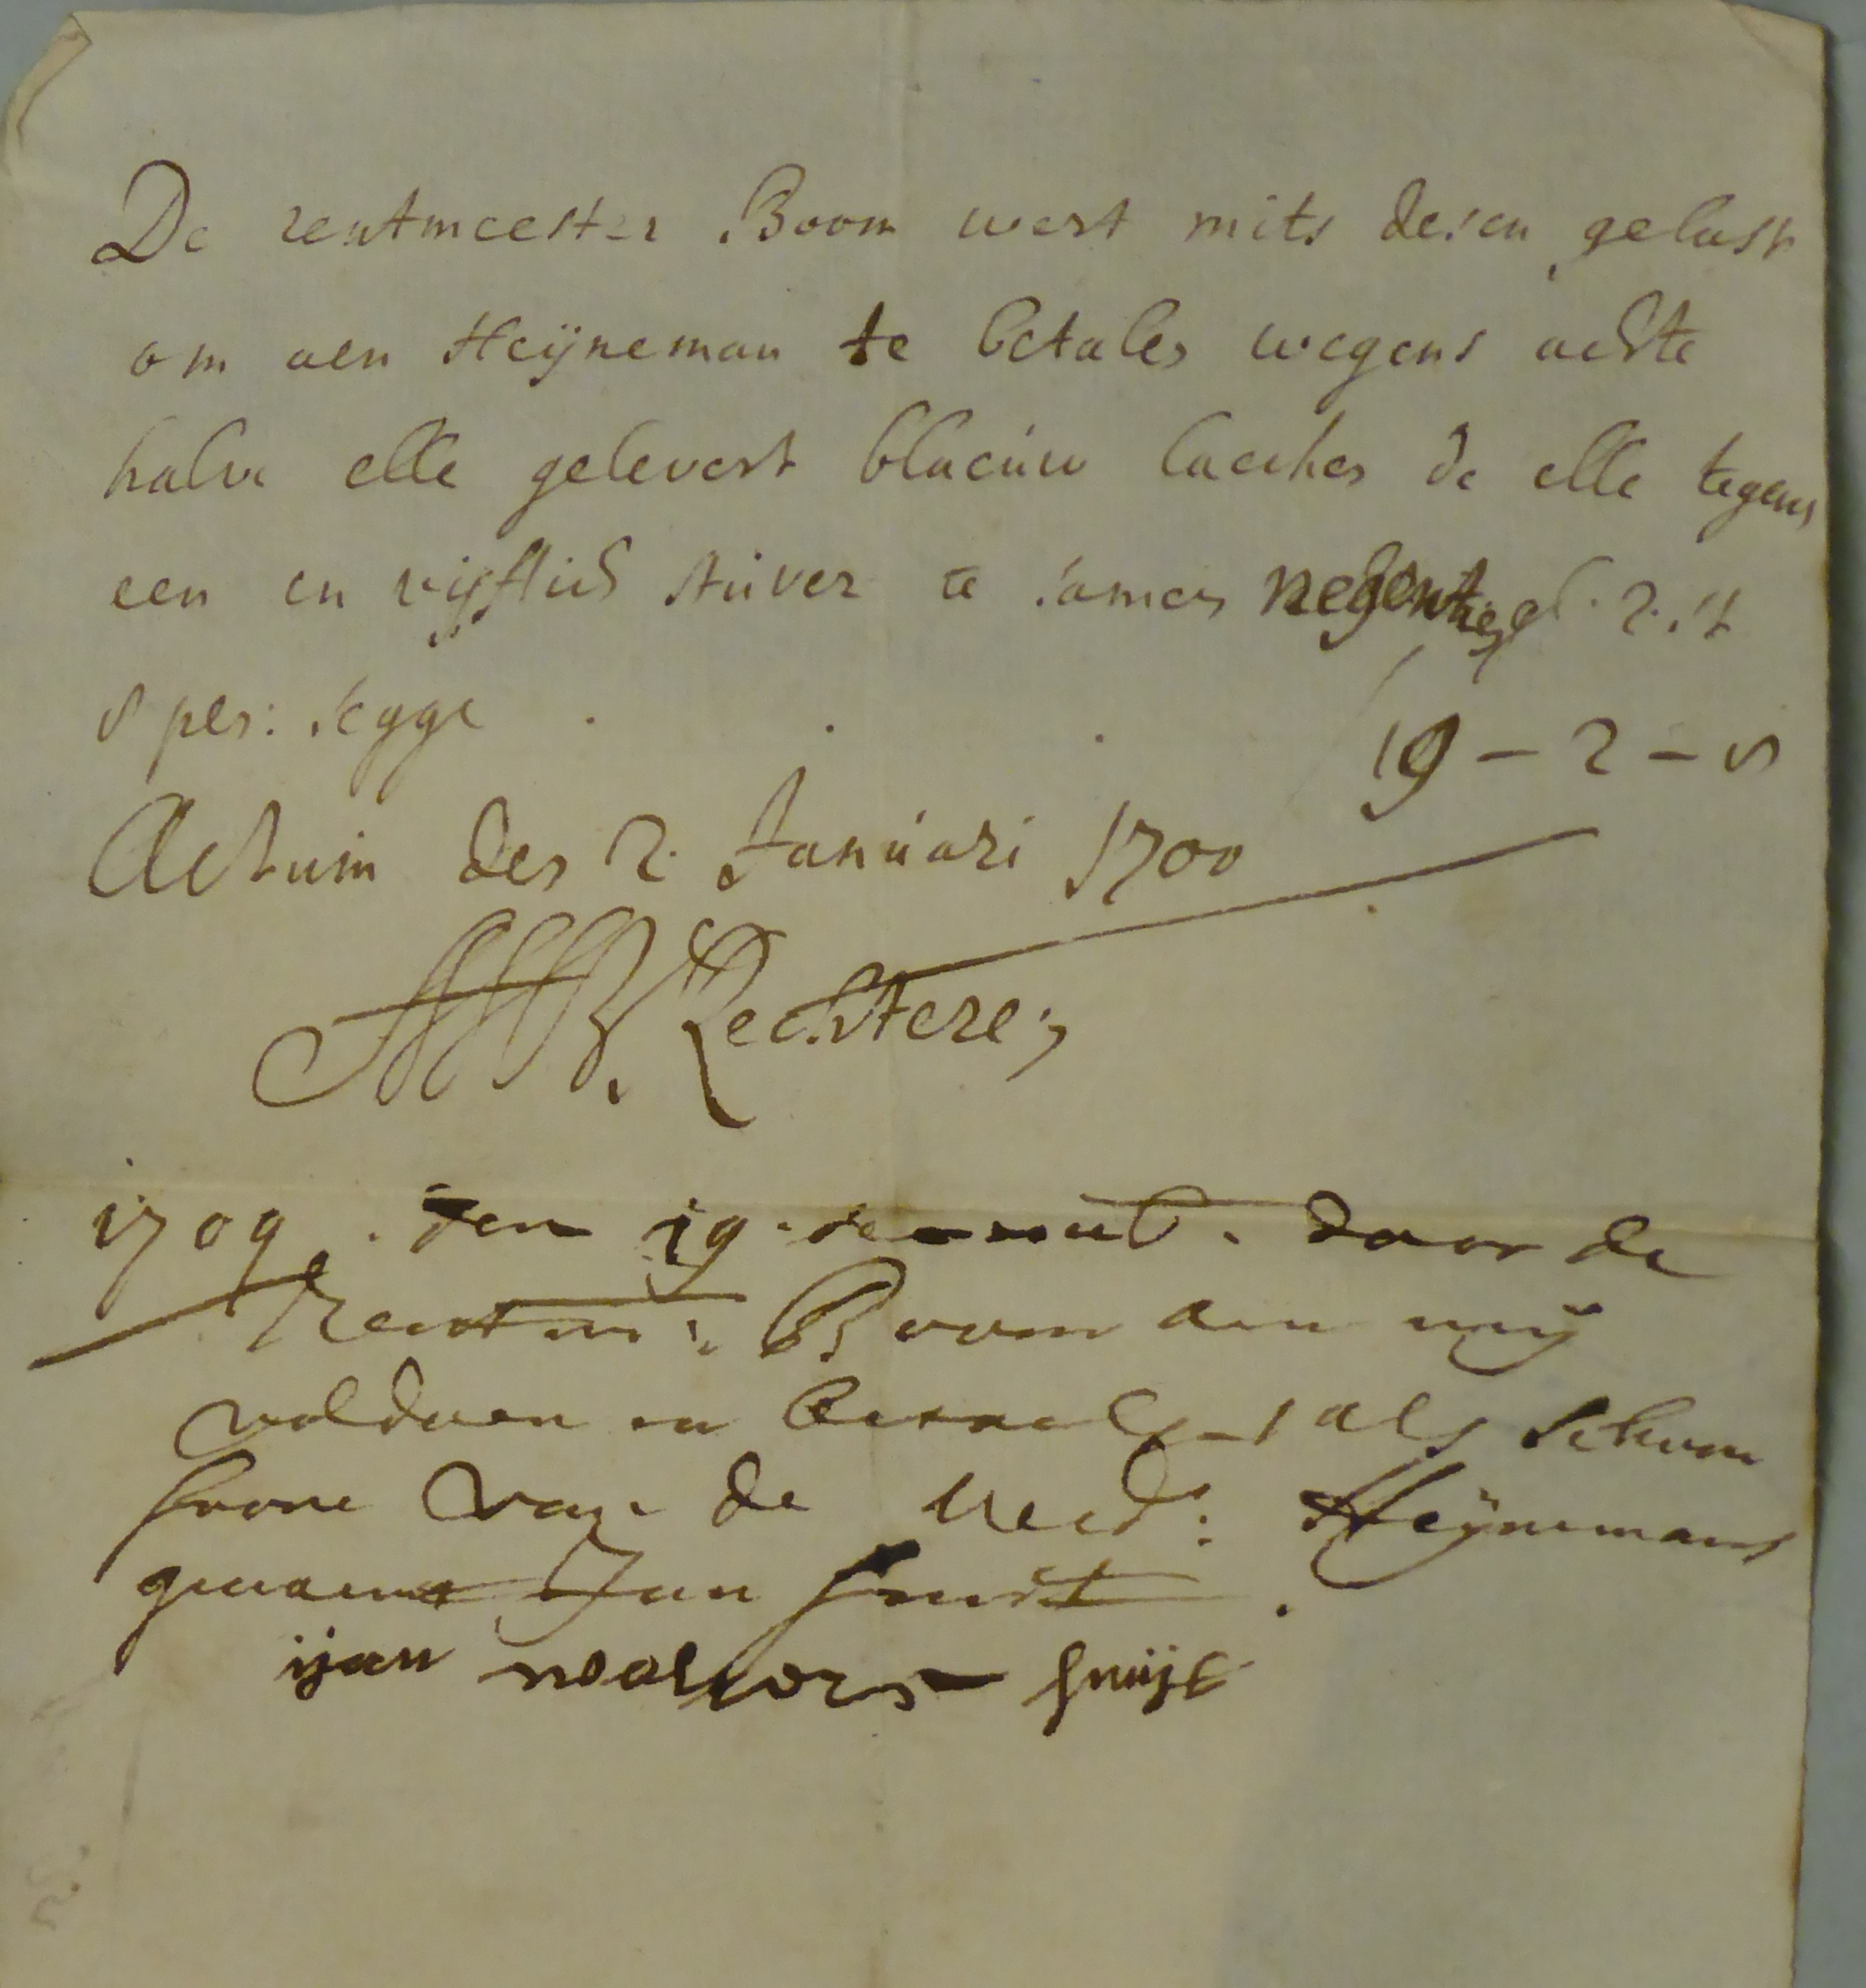 De rentmeester Boom wert mits desen gelast
om aen Heijneman te betalen wegens achte
halve elle gelevert blaeuw laecken de elle tegens
een en vijftich stuver te samen negentien gl. 2. st
8 pen: segge . . . 19 - 2 - 8
Actum den 2. Januari 1700
Rechteren
1709. den 19 door de
Rentm: Boom aen mij
voldaen en betaelt als schoon
soone van de Wed: Heijnemans
genaemt Jan Smidt.
ijan wolters smijt